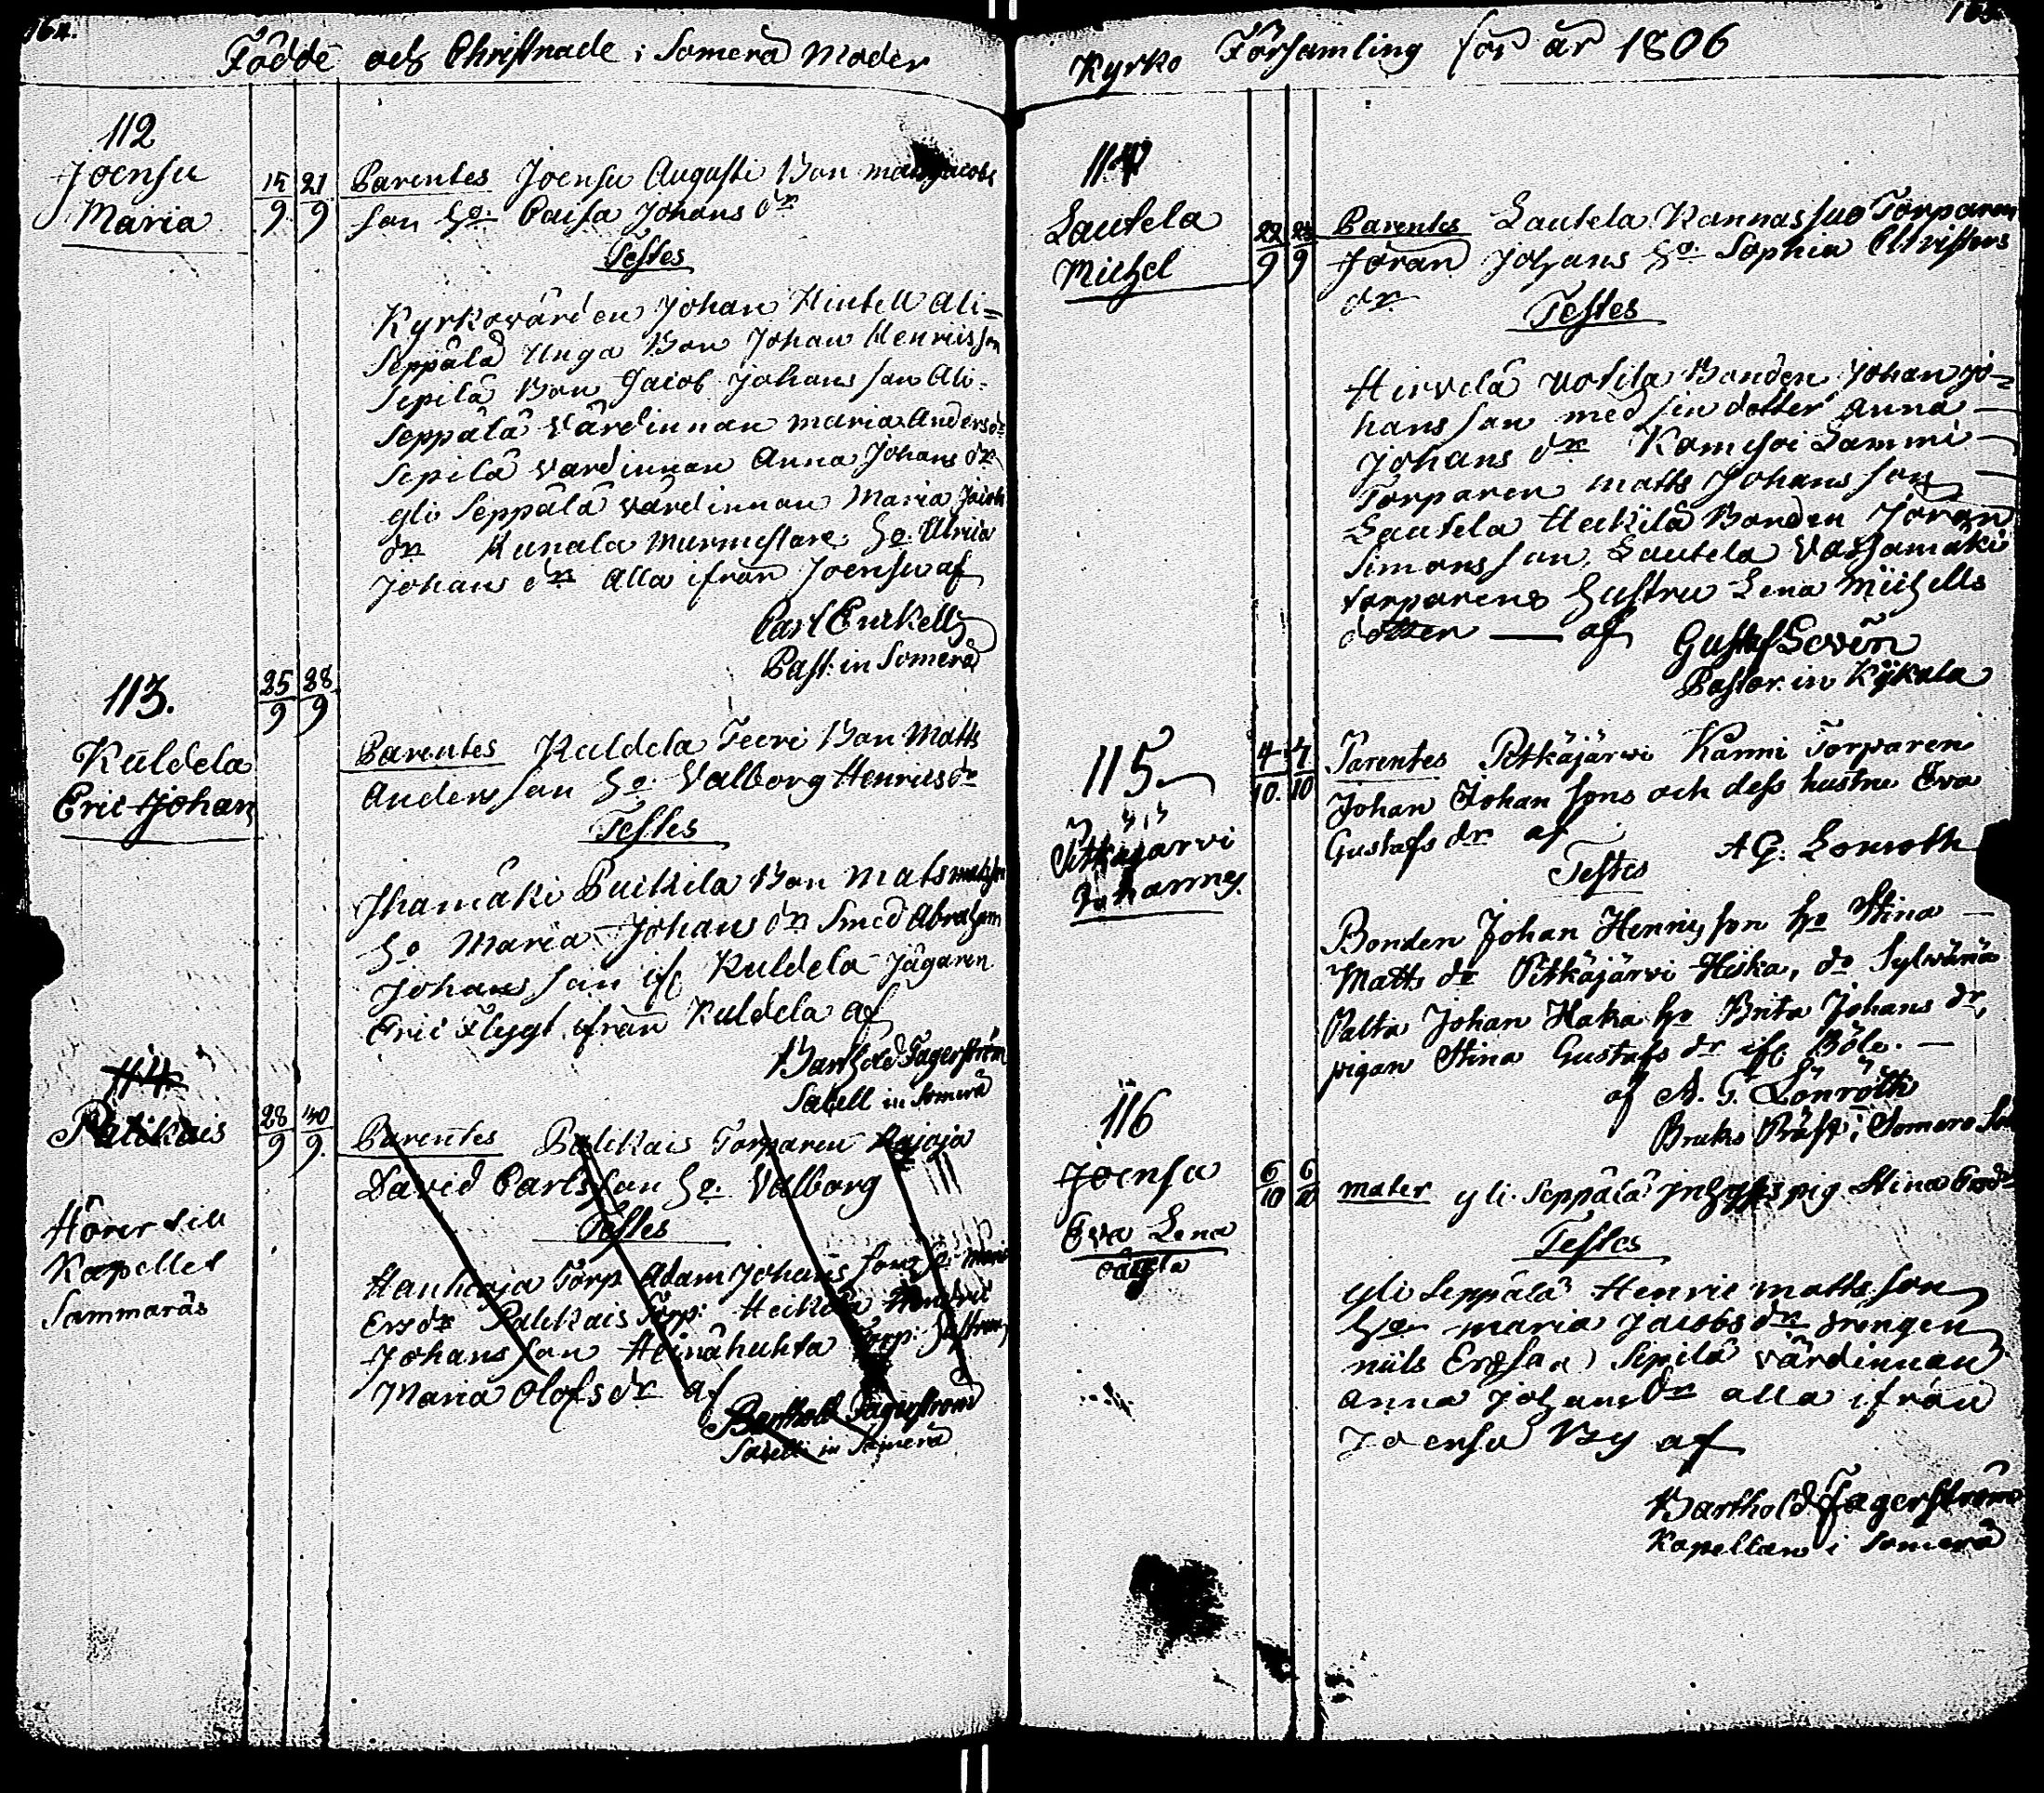 164.
Födde och Christnade i Somerå Moder
112
Joensu
Maria
15 21
9 9
Parentes Joensu Augusti Bon mats Jacobs
son Ho. Caisa Johans dr
Testes
Kyrkovärden Johan Hintell Ali=
Seppälä Unga Bon Johan Henricsson
Sepilä Bon Jacob Johans son Ali-
Seppälä Värdinnan Maria Andersdr
Sepilä värdinnan Anna Johans dr
yli Seppälä värdinnan Maria Jacobs
dr Murmestare Ho. Ulrica
Johans dr Alla ifrån Joensu af
Past: in Somerå
113.
Kuldela
Eric Johan
25 28
9 9
Parentes Kuldela Teeri Bon Matts
Anders son Ho. Valborg Henricsdr
Testes
Ihamäki Bon Mats
Ho Maria Johans dr Smed Abraham
Johans son if: Kuldela Jägaren
Eric Flygt ifrån Kuldela af
Barthold Fagerström
Sacell in Somerå
114
Palikais
Hörer till
Kapellet
Sammaräs
28
9 9.
Parentes Palikais Torparen
David Carlsson Ho. Valborg
Testes
Torp Adam Johans son Ho: Maria
Ersdr Palikais Torp: Heikilä
Johans son Heinähuhta Torp:
Maria Olofsdr af
Barthold Fagerström
Sacell: in Somerå
Kyrko Församling för år 1806
114
Lautela
Michel
22
9 9
Parentes Lautela Kannassuo Torparen
Jöran Johans Ho. Sophia Christers
dr
Testes
Hirvelä Uotila Bonden Johan Jo-
hans son med sin dotter Anna
Johans dr Lammi
Torparen Matts Johans son
Lautela Heikilä Bonden Jöran
Simons son, Lautela
torparens hustru Lena Michells
dotter — af
Pastor in Kijkala
115
Pitkäjärvi
Johannes.
4 7
10. 10
Parentes Pitkäjärwi Kanni Torparen
Johan Johan sons och dess hustru Eva
Gustafs dr af
Testes A G. Lönroth
Bonden Johan Henrics son ho Stina —
Matts dr Pitkäjärwi Hiska, do Sylwänä
Palta Johan Haka ho Brita Johans dr,
pigan Stina Gustafs dr if: Böle. —
af A. G. Lönroth
Bruks Präst i Somero
116
Joensu
Eva Lena
oäkta
6 6
10 10
mater yli Seppälä pig. Stina
Testes
yli Seppälä Henric matts son
Ho maria Jacobs dr drängen
niils Ersson Sepilä värdinnan
Anna Johans dr alla ifrån
Joensu By af
Barthold Fagerström
Kapellan i Somerå